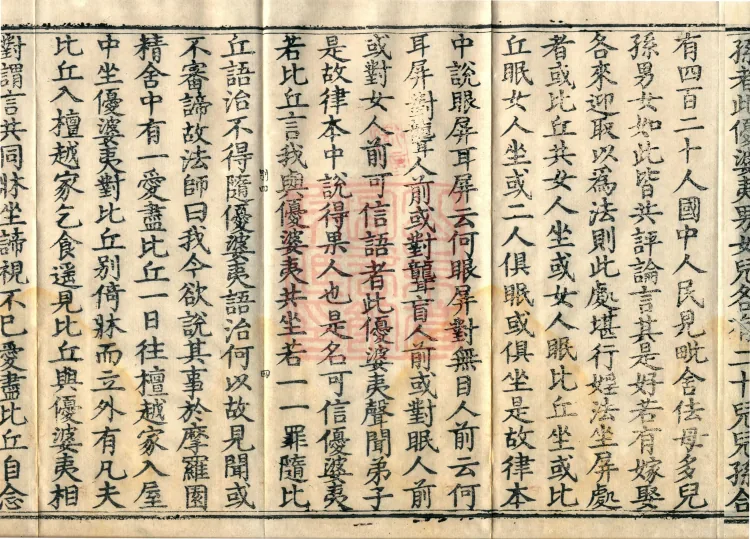 孫者此優婆夷男女兒各有二十兒兒孫合
有四百二十人國中人民見毗舍佉母多兒
孫男女如此皆共評論言其是好若有嫁娶
各來迎取以為法則此處堪行婬法坐屏處
者或比丘共女人坐或女人眠比丘坐或比
丘眠女人坐或二人俱眠或俱坐是故律本
中說眼屏耳屏云何眼屏對無目人前云何
耳屏對聾人前或對聾盲人前或對眠人前
或對女人前可信語者此優婆夷聲聞弟子
是故律本中說得果人也是名可信優婆夷
若比丘言我與優婆夷共坐若一一罪隨比
丘語治不得隨優婆夷語治何以故見聞或
不審諦故法師曰我今欲說其事於摩羅園
精舍中有一愛盡比丘一日往檀越家入屋
中坐優婆夷對比丘別倚牀而立外有凡夫
比丘入檀越家乞食遥見比丘與優婆夷相
對謂言共同牀坐諦視不已愛盡比丘自念